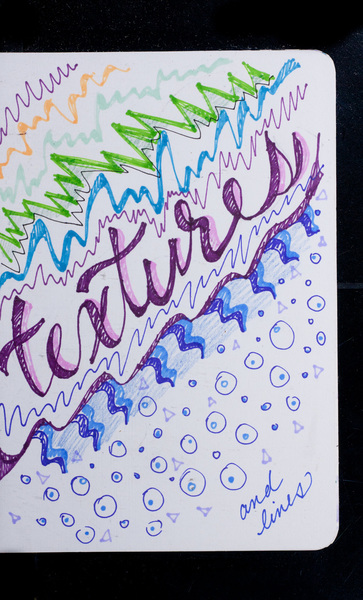 textures
and
lines